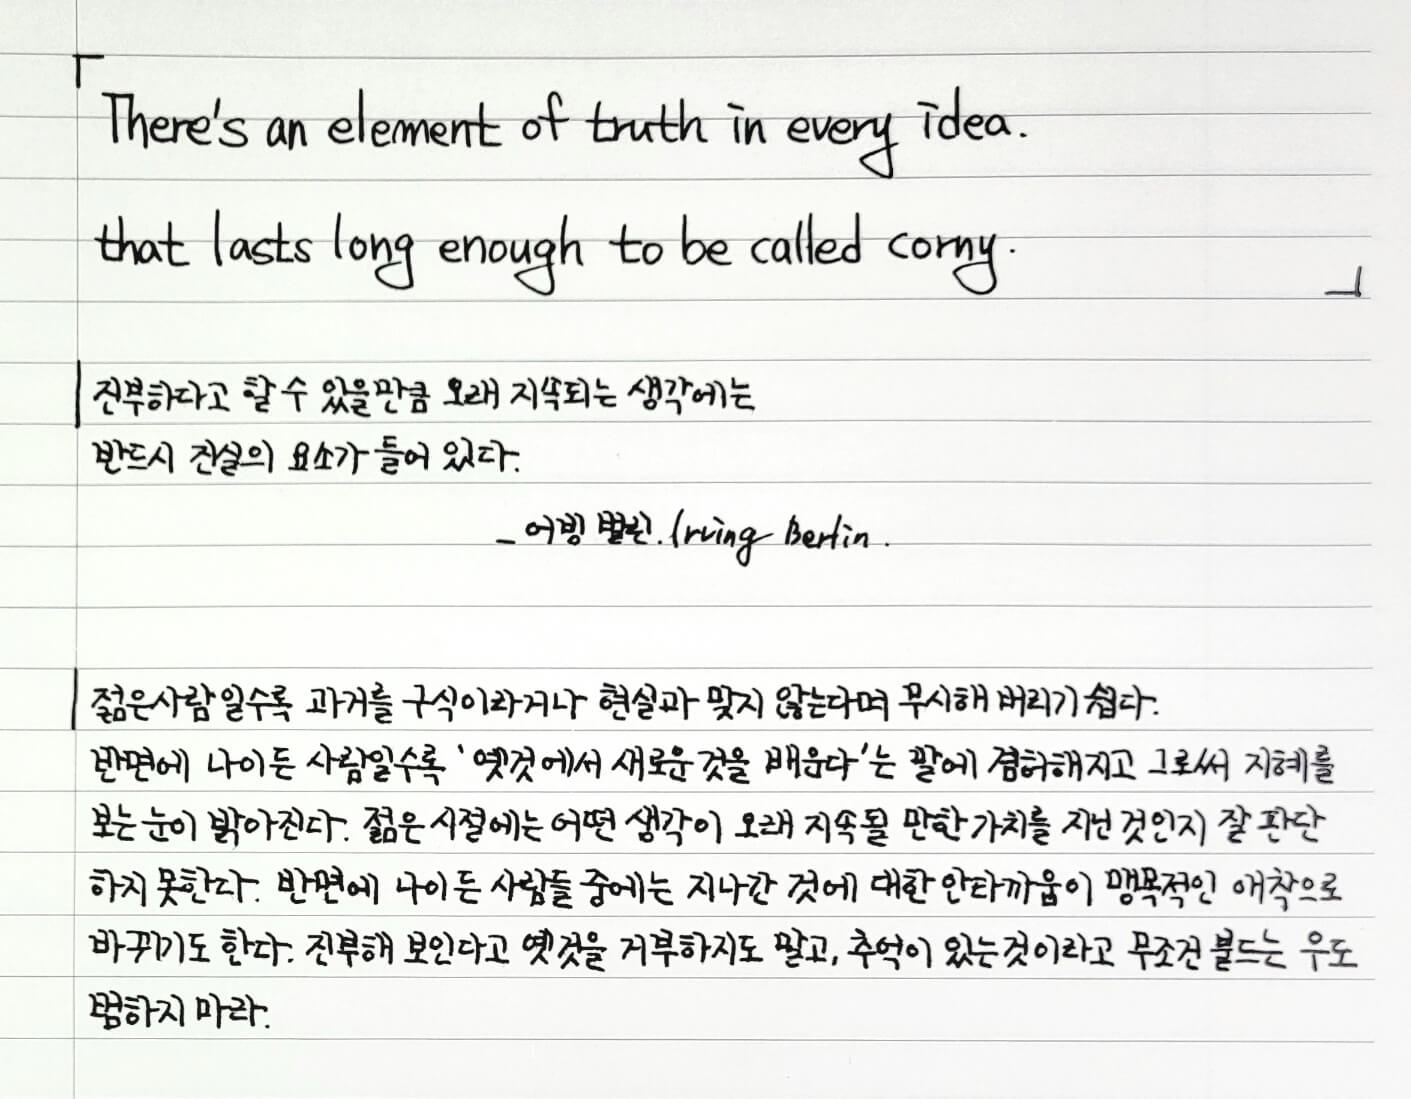 「There's an element of truth in every idea.
that lasts long enough to be called corny.」
진부하다고 할 수 있을만큼 오래 지속되는 생각에는
반드시 진실의 요소가 들어 있다.
_ 어빙 벌린. Irving Berlin.
젊은사람일수록 과거를 구식이라거나 현실과 맞지 않는다며 무시해 버리기 쉽다.
반면에 나이든 사람일수록 '옛것에서 새로운 것을 배운다'는 말에 겸허해지고 그로써 지혜를
보는 눈이 밝아진다. 젊은 시절에는 어떤 생각이 오래 지속될 만한 가치를 지닌 것인지 잘 판단
하지 못한다. 반면에 나이든 사람들 중에는 지나간 것에 대한 안타까움이 맹목적인 애착으로
바뀌기도 한다. 진부해 보인다고 옛것을 거부하지도 말고, 추억이 있는것이라고 무조건 붙드는 우도
범하지 마라.